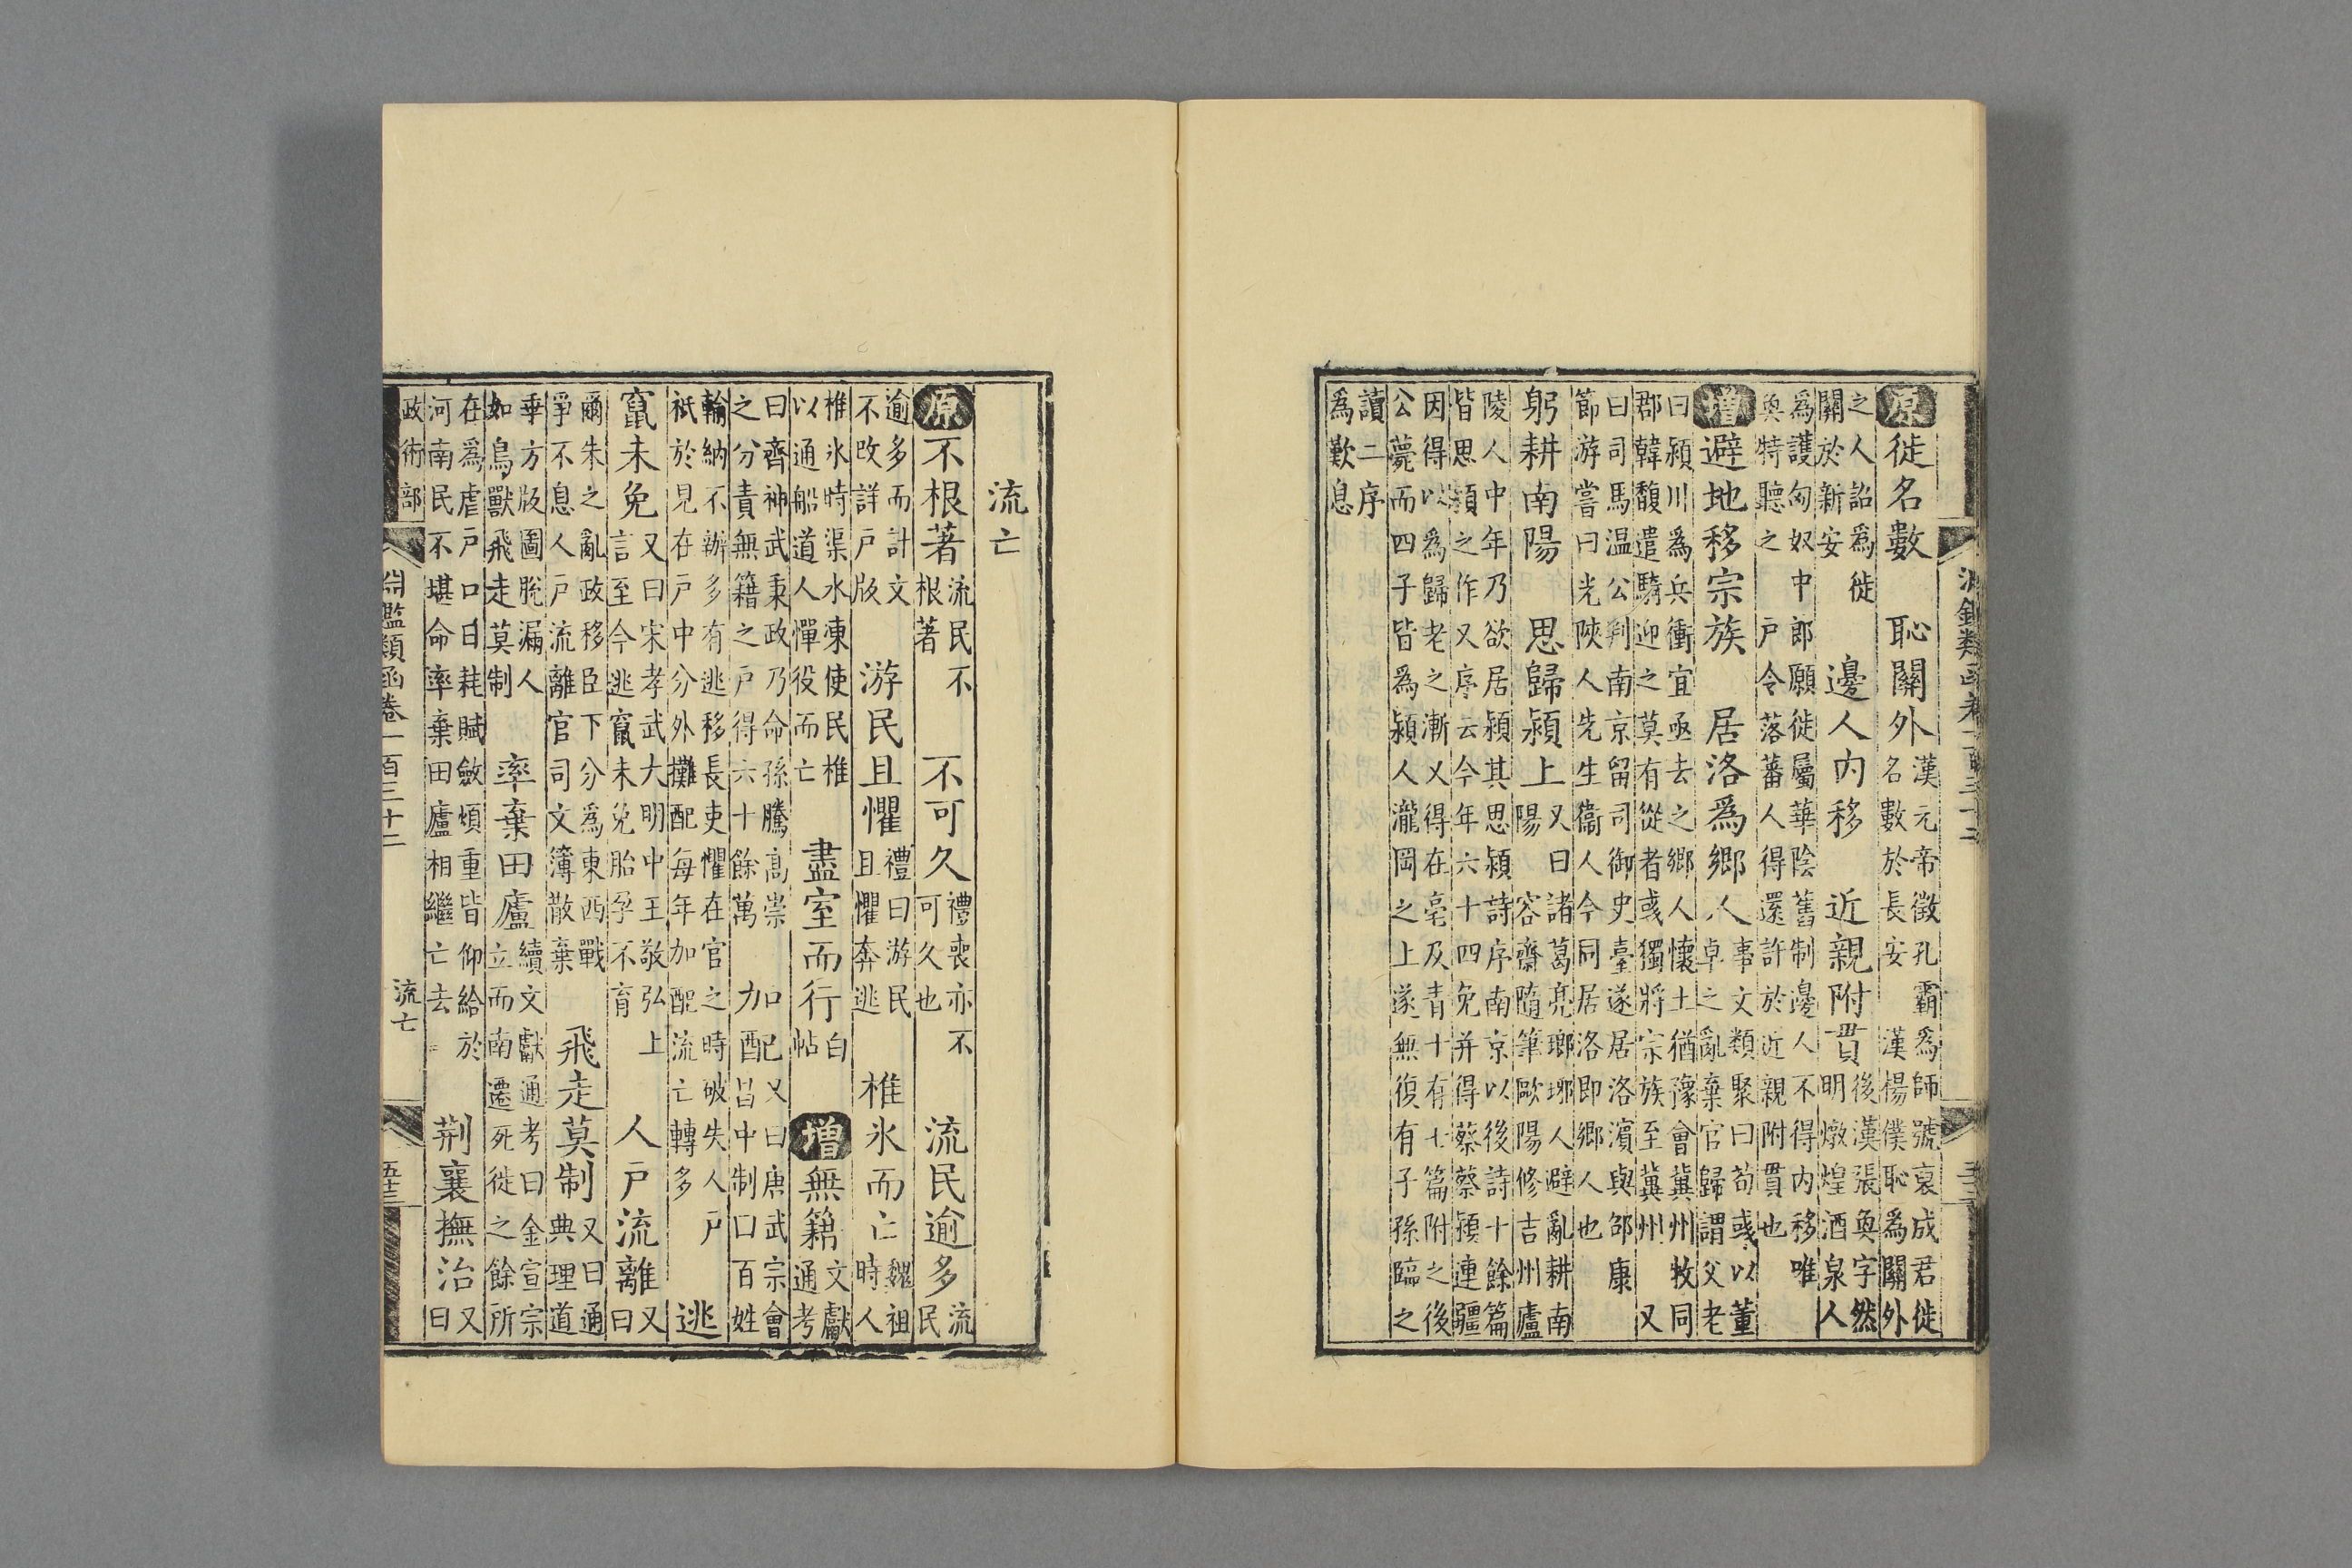 淵鑑類函卷一百三十二
原徙名數　恥關外漢元帝徵孔霸為師號裒成君徙名數於長安　漢楊僕恥為關外
之人詔為徙關於新安　邊人內移　近親附貫後漢張奐字然明燉煌酒泉人
為護匈奴中郎願徙屬華陰舊制邊人不得內移唯奐特聽之　戶令落蕃人得還許於近親附貫也
增避地移宗族　居洛為鄉人事文類聚曰荀彧以董卓之亂棄官歸謂父老
曰潁川為兵衝宜亟去之鄉人懷土猶豫會冀州牧同郡韓馥遣騎迎之莫有從者彧獨將宗族至冀州　又
曰司馬温公判南京留司御史臺遂居洛濱與邵康節游嘗曰光陝人先生衞人今同居洛即鄉人也
躬耕南陽　思歸潁上又曰諸葛亮瑯琊人避亂耕南陽　容齋隨筆歐陽修吉州廬
陵人中年乃欲居潁其思潁詩序南京以後詩十餘篇皆思潁之作又序云今年六十四免并得蔡蔡潁連疆
因得以為歸老之漸又得在亳及青十有七篇附之後公薨而四子皆為潁人瀧岡之上遂無復有子孫臨之
讀二序為歎息
流亡
原不根著流民不根著　不可久禮喪亦不可久也　流民逾多流民
逾多而計文不改詳戶版　游民且懼禮曰游民且懼奔逃　椎氷而亡魏祖時人
椎氷時渠水凍使民椎以通船道人憚役而亡　盡室而行白帖　增無籍文獻通考
曰齊神武秉政乃命孫騰高崇之分責無籍之戶得六十餘萬　加配又曰唐武宗會昌中制口百姓
輸納不辦多有逃移長吏懼在官之時破失人戶祇於見在戶中分外攤配每年加配流亡轉多　逃
竄未免又曰宋孝武大明中王敬弘上言至今逃竄未免胎孕不育　人戶流離又曰
爾朱之亂政移臣下分為東西戰爭不息人戶流離官司文簿散棄　飛走莫制又曰通典理道
乖方版圖脫漏人如鳥獸飛走莫制　率棄田廬續文獻通考曰金宣宗立而南遷死徙之餘所
在為虐戶口日耗賦斂煩重皆仰給於河南民不堪命率棄田廬相繼亡去　荊襄撫治又曰
政術部
淵鑑類函卷一百三十二　流亡　五十三